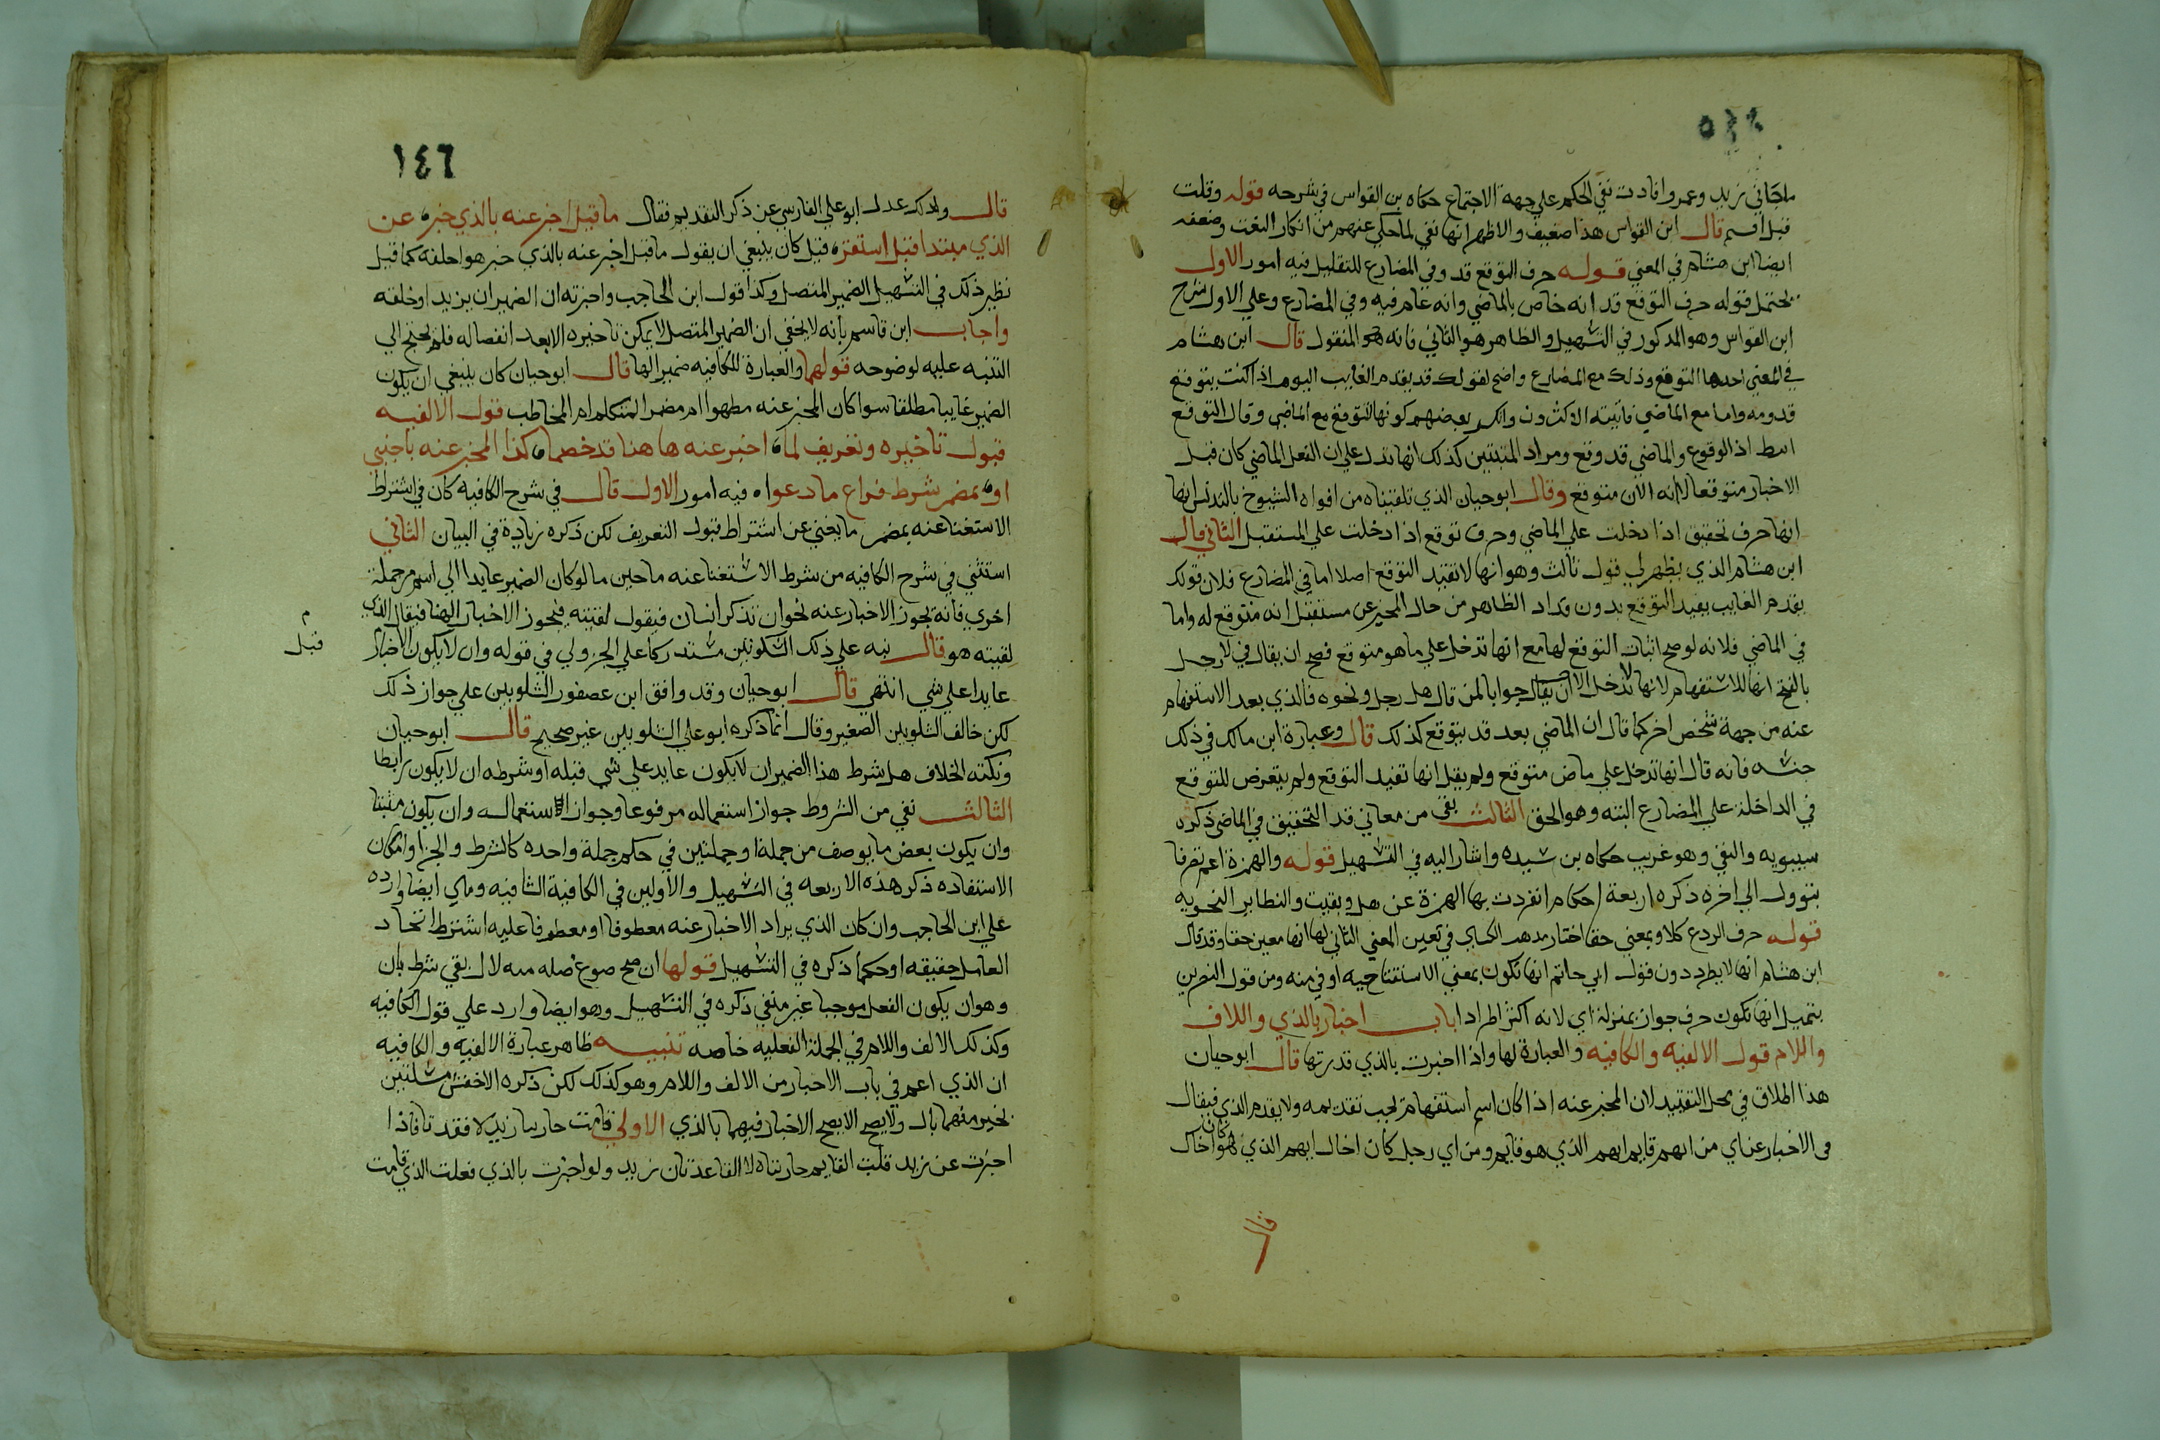 ماجاني زيد وعمرو افادت نفي الحكم علي جهة الاجتماع حكاه بن القواس في شرحه قوله وقلت
قبل اقسم قال ابن القواس هذا ضعيف والاظهر انها نفي لما حكي عنهم من انكار البغت وضعفه
ايضا ابن هشام في المغني قوله حرف التوقع قد وفي المضارع للتقليل فيه امور الاول
يحتمل قوله حرف التوقع قد انه خاص بالماضي وانه عام فيه وفي المضارع وعلي الاول شرح
ابن القواس وهو المذكور في التسهيل والظاهر هو الثاني فانه هو المنقول قال ابن هشام
في المغني احدها التوقع وذلك مع المضارع واضح لقولك قد يقدم الغايب اليوم اذا كنت تتوقع
قدومه واما مع الماضي فاثبته الاكثرون وانكر بعضهم كونها للتوقع مع الماضي وقال التوقع
انتظار الوقوع والماضي قد وقع ومراد المثبتين كذلك انها تدل علي ان الفعل الماضي كان قبل
الاخبار متوقعا لا انه الان متوقع وقال ابو حيان الذي تلقيناه من افواه الشيوخ بالاندلس
انها حرف تحقيق اذا دخلت علي الماضي وحرف توقع اذا دخلت علي المستقبل الثاني قال
ابن هشام الذي يظهر لي قول ثالث وهو انها لا تفيد التوقع اصلا اما في المضارع فلان قولك
يقدم الغايب يفيد التوقع بدون قد اذ الظاهر من حال المخبر عن مستقبل انه متوقع له واما
في الماضي فلانه لو صح اثبات التوقع لها مع انها تدخل علي ما هو متوقع فصح ان يقال في لا رجل
بالفتح انها للاستفهام لانها لا تدخل الا ان يقال جوابا لمن قال هل رجل ونحوه فالذي بعد الاستفهام
عنه من جهة شخص اخر كما قال ان الماضي بعد قد يتوقع كذلك قال وعبارة ابن مالك في ذلك
حسنه فانه قال انها تدخل علي ماض متوقع ولم يقل انها تفيد التوقع ولم يتعرض للتوقع
في الداخلة علي المضارع البتة وهو الحق الثالث بقي من معاني قد التحقيق في الماضي ذكره
سيبويه والنفي وهو غريب حكاه بن سيده واشار اليه في التسهيل قوله والهمزة اعم تصرفا
بتوول الي اخره ذكره اربعة احكام انفردت بها الهمزة عن هل وبقيت والنظاير النحويه
قوله حرف الردع كلا وبمعني حقا اختار مذهب الكساي في تعين المعني الثاني لها انها معين حقا وقد قال
ابن هشام انها لا يطرد دون قول ابي حاتم انها تكون بمعني الاستفتاحيه اوفي منه ومن قول النضر بن
شميل انها تكون حرف جواز بمنزلة اي لانه اكثر اطرادا باب اخبار بالذي واللاف
واللام قول الالفيه والكافيه والعبارة لها واذا اخبرت بالذي قدرتها قال ابو حيان
هذا اطلاق في محل التقييد لان المخبر عنه اذا كان اسم استفهام يجب تقديمه ولا يقدم الذي فيقال
في الاخبار عن اي من ايهم قايم ايهم الذي هو قايم ومن اي رجل كان اخاك ايهم الذي كان هو اخاك
١٤٦
قال ولذلك عدل ابو علي الفارسي عن ذكر التقديم فقال ما قيل اخبر عنه بالذي خبر عن
الذي مبتدا قبل استقر قيل كان ينبغي ان يقول ما قيل اخبر عنه بالذي خبر هو او خلفه كما قيل
نظير ذلك في التسهيل الضمير المتصل وكذا قول ابن الحاجب واخبرته ان الضمير ان يزيد او خلفه
واجاب ابن قاسم بانه لا يخفي ان الضمير المتصل لا يمكن تاخيره الا بعد انفصاله فلم يحتج الي
التنبه عليه لوضوحه قولهما والعبارة للكافيه ضمير الها قال ابو حيان كان ينبغي ان يكون
الضمير غايبا مطلقا سوا كان المخبر عنه مظهرا ام مضمر المتكلم ام المخاطب قول الالفيه
قبول تاخيره وتعريف لما اخبر عنه ها هنا قد خصما كذا المخبر عنه باجنبي
او بمضمر شرط فراع ما دعوا فيه امور الاول قال في شرح الكافية كان في اشتراط
الاستغنا عنه بمضمر ما يغني عن اشتراط قبول التعريف لكن ذكره زيادة في البيان الثاني
استثني في شرح الكافيه من شرط الاستغنا عنه ماحين ما لو كان الضمير عايدا الي اسم من جملة
اخري فانه يجوز الاخبار عنه نحو ان تذكر انسان فيقول لقيته فيجوز الاخبار الهنا فيقال الذي
لقيته هو قال نبه علي ذلك الشلوبين مستدركا علي الجزولي في قوله وان لا يكون الاخبار
قبل
عايدا علي شي انتهي قال ابو حيان وقد وافق ابن عصفور الشلوبين علي جواز ذلك
لكن خالف الشلوبين الصغير وقال انما ذكره ابو علي الشلوبين غير صحيح قال ابو حيان
ونكتة الخلاف هل شرط هذا الضمير ان لا يكون عايد علي شي قبله او شرطه ان لا يكون رابطا
الثالث نفي من الشروط جواز استعماله مرفوعا وجواز استعماله وان يكون مثبتا
وان يكون بعض ما يوصف من جملة او جملتين في حكم جملة واحده كالشرط والجزا وامكان
الاستفاده ذكر هذه الاربعه في التسهيل والاولين في الكافية الشافيه وهاي ايضا وارده
علي ابن الحاجب وان كان الذي يراد الاخبار عنه معطوفا او معطوفا عليه اشترط اتحاد
العامل حقيقه او حكما ذكره في التسهيل قولها ان صح صوغ صله منه لال بقي شرط ثان
وهو ان يكون الفعل موجبا غير منفي ذكره في التسهيل وهو ايضا وارد علي قول الكافيه
وكذلك الالف واللام في الجملة الفعليه خاصه تنبيه ظاهر عبارة الالفيه والكافيه
ان الذي اعم في باب الاخبار من الالف واللام وهو كذلك لكن ذكره الاخفش مسئلتين
يخبر منهما بال ولا يصح الا يصح الاخبار فيهما بالذي الاولي قامت جاريتا زيد لا فقد تا فاذا
اخبرت عن زيد قلت القايم جاريتاه لا القاعدتان زيد ولو اخبرت بالذي فعلت الذي قامت